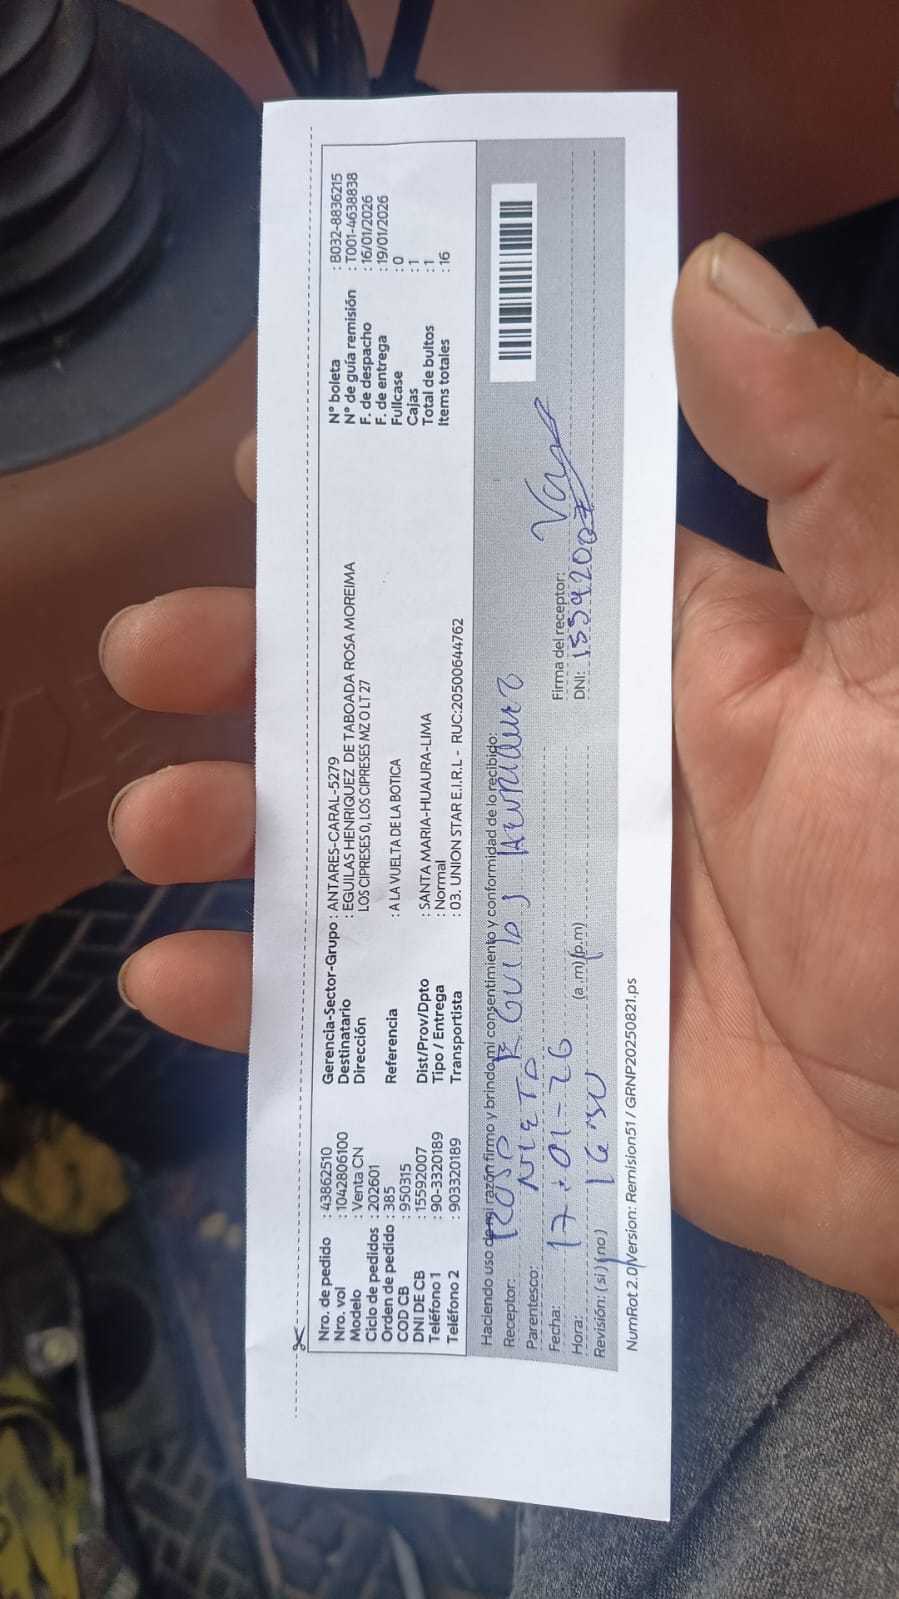 Nro. de pedido : 43862510
Nro. vol : 1042806100
Modelo : Venta CN
Ciclo de pedidos : 202601
Orden de pedido : 385
COD CB : 950315
DNI DE CB : 15592007
Teléfono 1 : 90-3320189
Teléfono 2 : 903320189
Gerencia-Sector-Grupo : ANTARES-CARAL-5279
Destinatario : EGUILAS HENRIQUEZ DE TABOADA ROSA MOREIMA
Dirección LOS CIPRESES 0, LOS CIPRESES MZ O LT 27
Referencia : A LA VUELTA DE LA BOTICA
Dist/Prov/Dpto : SANTA MARIA-HUAURA-LIMA
Tipo / Entrega : Normal
Transportista : 03. UNION STAR E.I.R.L - RUC:20500644762
N° boleta : B032-8836215
N° de guía remisión : T001-4638838
F. de despacho : 16/01/2026
F. de entrega : 19/01/2026
Fullcase : 0
Cajas : 1
Total de bultos : 1
Items totales : 16
Haciendo uso de mi razón firmo y brindo mi consentimiento y conformidad de lo recibido:
Receptor: Rosa
Parentesco: NIETO
Fecha: 17-01-26
Hora: (a.m) (p.m)
Revisión: ( si ) ( no )
Firma del receptor:
DNI: 15592007
NumRot 2.0/Version: Remision51 / GRNP20250821.ps